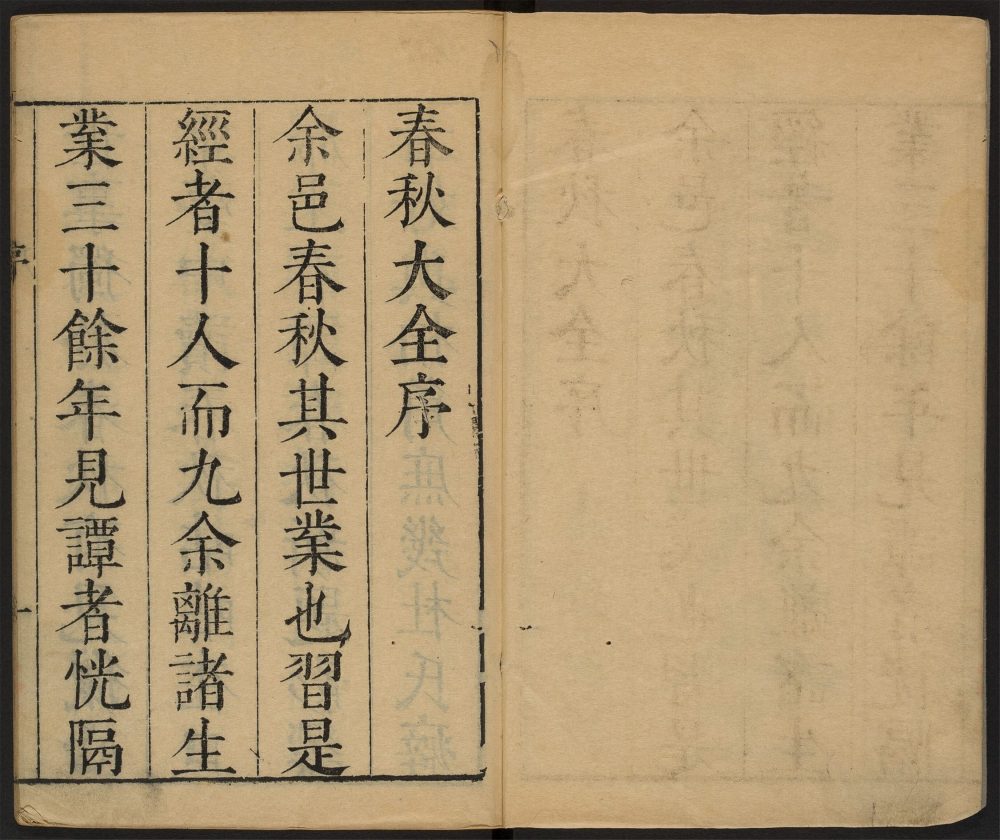 春秋大全序
余邑春秋其世業也習是
經者十人而九余離諸生
業三十餘年見譚者恍隔
序
一